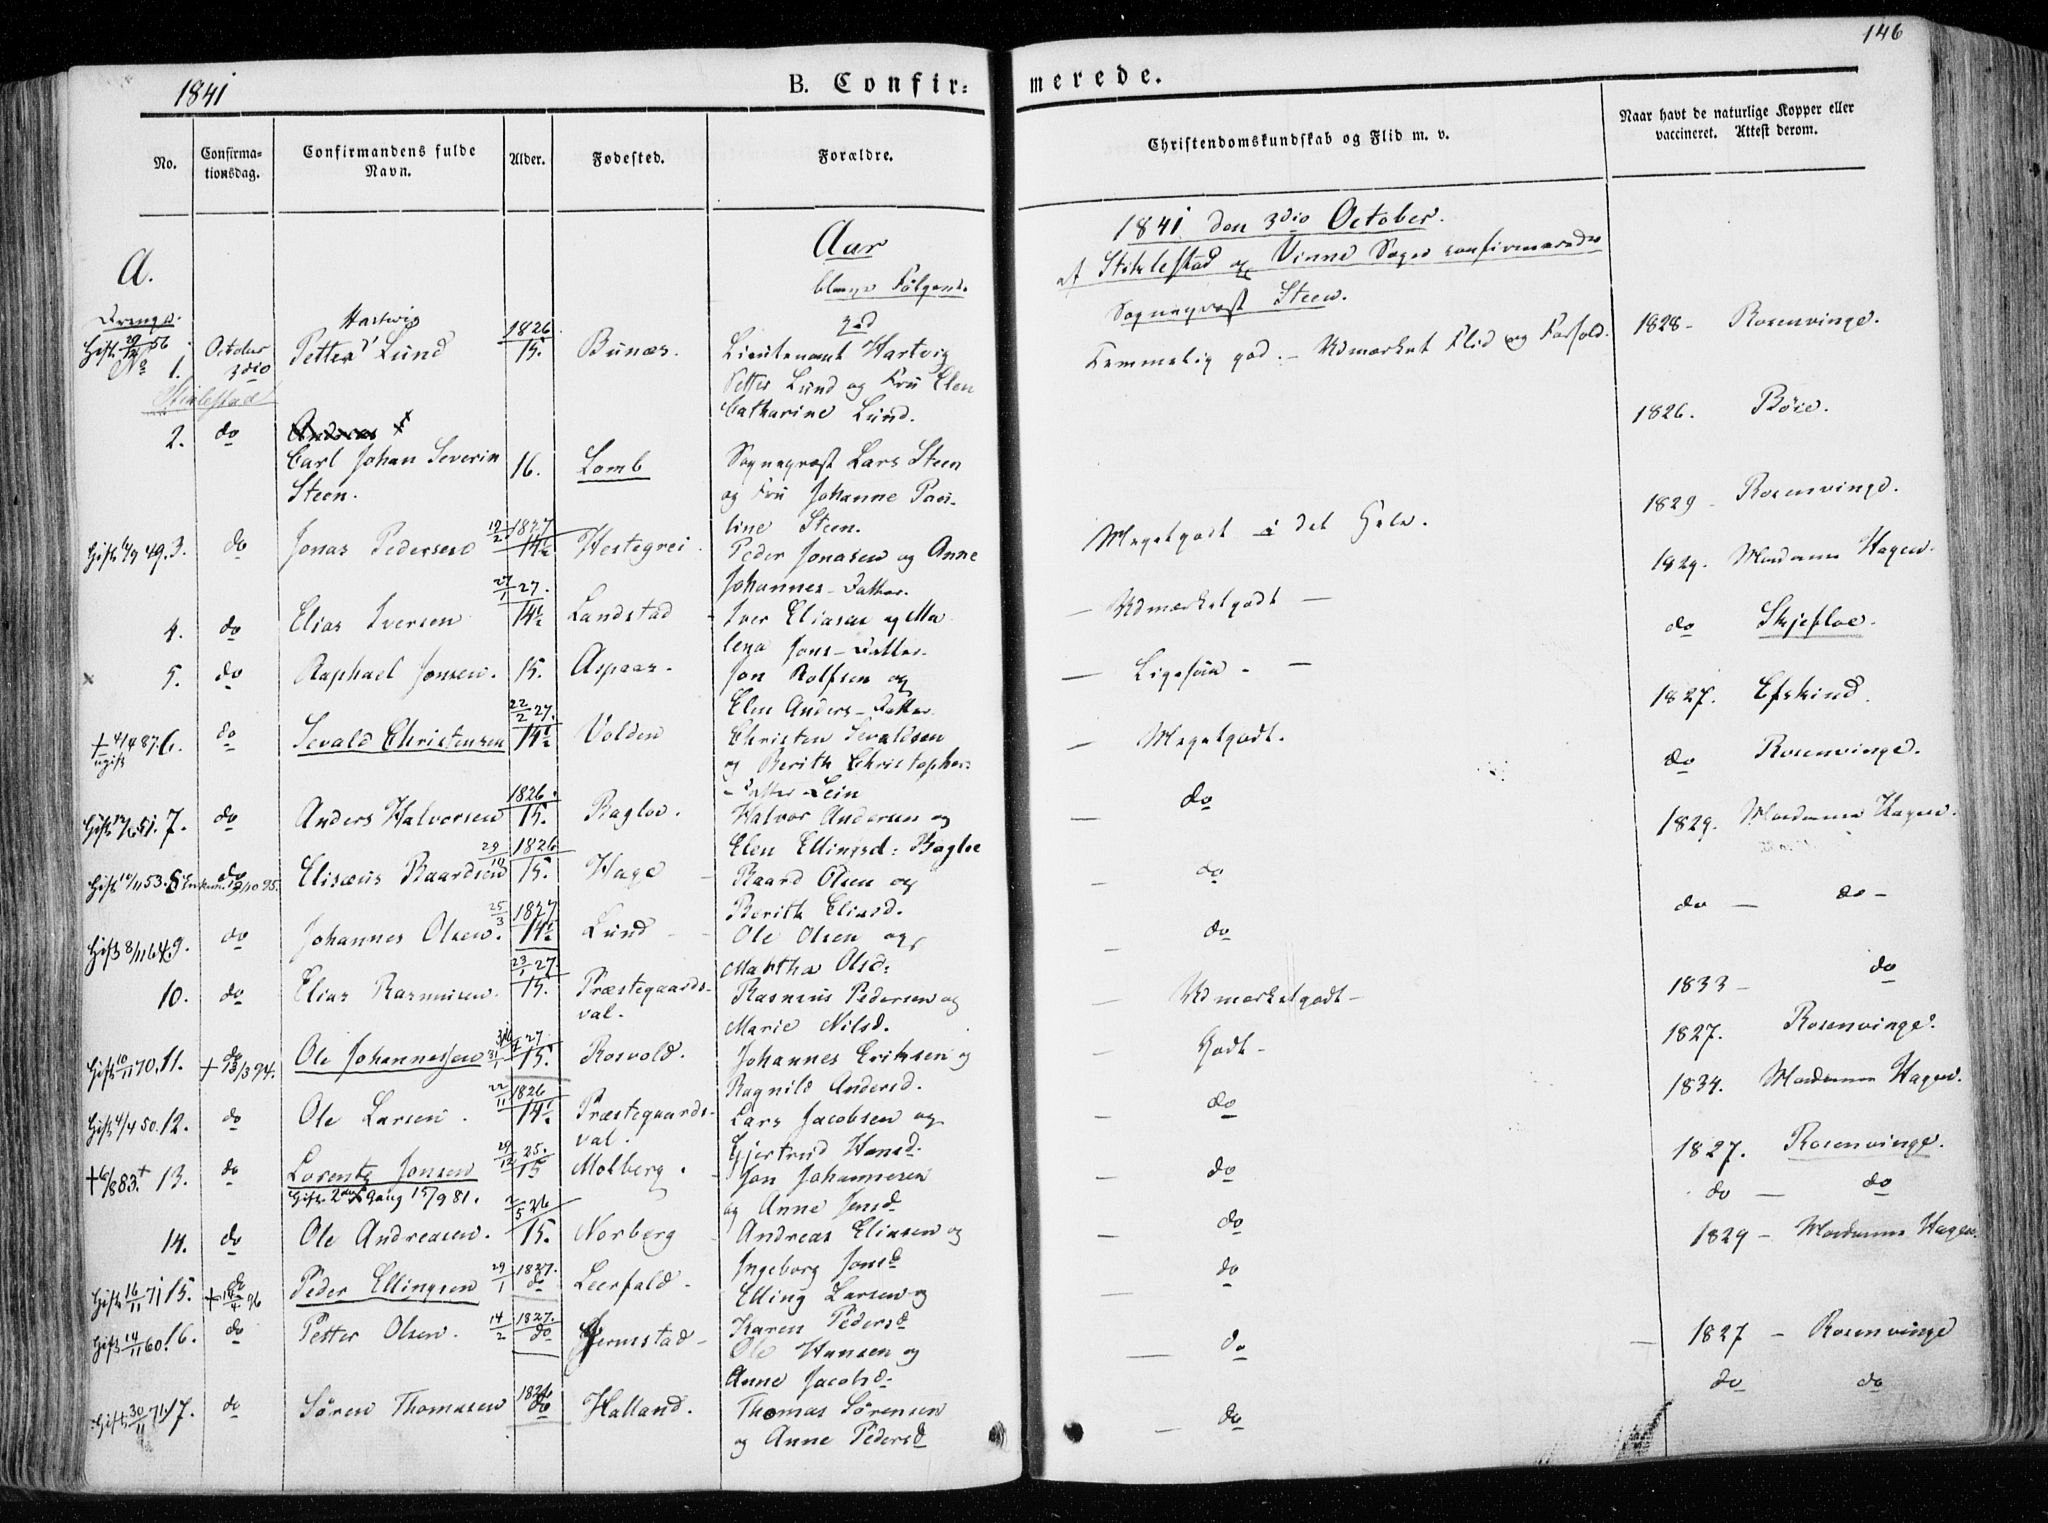 1841
B. Confir=
merede.
146
No.
Confirma-
tionsdag.
Confirmandens fulde
Navn.
Alder.
Fødested.
Forældre.
Christendomskundskab og Flid m. v.
Naar havt de naturlige Kopper eller
vaccineret. Attest derom.
A.
Aar
1841 den 3dio October.
af Stiklestad og Vinne Sogne confirmerede
Sognepræst Steen.
Drenge.
Gift 29/12 56
No 1.
October
3dio
Hartvig
Petter Lund
1826
15.
Bunæs.
Lieutenant Hartvig
Petter Lund og Fru Elen
Catharine Lund.
Temmelig god. - Udmærket Flid og Forhold.
1828 - Rosenvinge.
Stiklestad
2.
do
Andreas
Carl Johan Severin
Steen.
16.
Lomb
Sognepræst Lars Steen
og Fru Johanne Pau-
line Steen.
1826. Böie.
3.
do
Jonas Pedersen
1827
14½
Hestegrei
Peder Jonasen og Anne
Johannes-Datter.
Megetgodt i det Hele.
1829 - Rosenvinge.
4.
do
Elias Iversen
27/1 27.
14½
Landstad
Iver Eliasen og Ma
lena Jons-Datter.
— Udmærketgodt —
1829. Madame Hagen.
5.
do
Raphael Jonsen.
15.
Aspaas.
Jon Rolfsen og
Elen Anders-Datter.
— Ligesaa - —
do Skjefloe.
6.
do
Sevald Christensen
22/2 27.
14½
Volden
Christen Sevaldsen
og Berith Christopher=
-Datter Lein
— Megetgodt.
1827. Efskind.
7.
do
Anders Halvorsen
1826.
15.
Bagloe.
Halvor Andersen og
Elen Ellingsd: Bagloe
— do
do Rosenvinge.
Gift 10/11 53. 8
do
Elisæus Baardsen
29/10 1826
15.
Hage
Baard Olsen og
Berith Eliasd.
— do
1829. Madame Hagen.
Gift 8/11 64 9.
do
Johannes Olsen.
25/3 1827
14½
Lund
Ole Olsen og
Martha Olsd:
— do
do — do -
10.
do
Elias Rasmusen.
23/1 27.
15.
Præstegaards-
val.
Rasmus Pedersen og
Marie Nilsd.
— Udmærketgodt -
1833 - do
Gift 10/11 70. 11.
do
+ 13/3 94.
Ole Johannessen
31/1 27
15.
Rosvold.
Johannes Eriksen og
Ragnild Andersd.
— Godt -
1827. Rosenvinge.
Gift 4/4 50. 12.
do
Ole Larsen.
22/11 1826
14½
Præstegaards-
val.
Lars Jacobsen og
Gjertrud Hansd.
— do
1834. Madame Hagen.
+ 6/8 83. + 13.
do
Lorentz Jonsen
Gift 2den Gang 15/9 81.
29/12 25.
15
Molberg.
Jon Johannesen
og Anne Jensd
— do
1827. Rosenvinge.
14.
do
Ole Andreasen.
2/5 26
15.
Norberg
Andreas Eliasen og
Ingeborg Jonsd
— do
do — do
Gift 16/11 71 15.
do
Peder Ellingsen
29/1 1827.
do
Leerfald -
Elling Larsen og
Karen Pedersd
— do
1829 - Madame Hagen.
Gift 14/11 60. 16.
do
Petter Olsen.
14/2 1827.
do
Gjermstad -
Ole Hansen og
Anne Jacobsd-
— do
— 1827 - Rosenvinge
Gift 30/11 71. 17.
do
Sören Thomasen
1826
do
Halland.
Thomas Sörensen
og Anne Pedersd
— do
do do